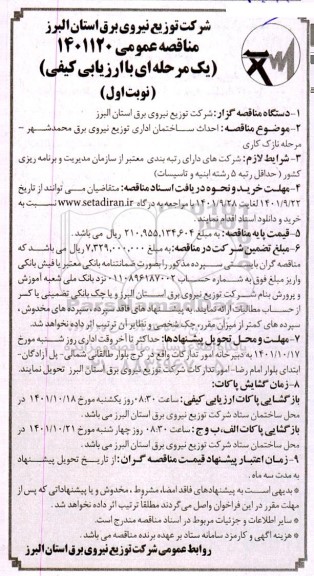 شرکت توزیع نیروی برق استان البرز
مناقصه عمومی ۱۴۰۱۱۲۰
(یک مرحله ای با ارزیابی کیفی)
(نوبت اول)
۱-دستگاه مناقصه گزار: شرکت توزیع نیروی برق استان البرز
۲-موضوع مناقصه: احداث ساختمان اداری توزیع نیروی برق محمدشهر -
مرحله نازک کاری
۳- شرایط لازم: شرکت های دارای رتبه بندی معتبر از سازمان مدیریت و برنامه ریزی
کشور (حداقل رتبه ۵ رشته ابنیه و تاسیسات)
۴-مهلت خرید و نحوه دریافت اسناد مناقصه: متقاضیان می توانند از تاریخ
۱۴۰۱/۹/۲۲ لغایت ۱۴۰۱/۹/۲۸ با مراجعه به درگاه www.setadiran.ir نسبت به
خرید و دانلود اسناد اقدام نمایند.
۵-قیمت پایه مناقصه: به مبلغ ۲۱۰،۹۵۵،۱۳۴،۶۰۴ ریال می باشد.
۶-مبلغ تضمین شرکت در مناقصه: به مبلغ ۷،۳۲۹،۰۰۰،۰۰۰ ریال می باشد که
مناقصه گران بایستی سپرده مذکور را بصورت ضمانتنامه بانکی معتبر یا فیش بانکی
واریز مبلغ فوق به شماره حساب ۰۱۱۰۸۹۶۱۸۷۰۰۲ نزد بانک ملی شعبه آموزش
و پرورش بنام شرکت توزیع نیروی برق استان البرز و یا چک بانکی تضمینی یا کسر
از حساب مطالبات ارائه نمایند. به پیشنهادهای فاقد سپرده، سپرده های مخدوش،
سپرده های کمتر از میزان مقرر، چک شخصی و نظایر آن ترتیب اثر داده نخواهد شد.
۷-مهلت و محل تحویل پیشنهادها: حداکثر تا آخر وقت اداری روز شنبه مورخ
۱۴۰۱/۱۰/۱۷ به دبیرخانه امور تدارکات واقع در کرج بلوار طالقانی شمالی- پل آزادگان-
ابتدای بلوار امام رضا- امور تدارکات شرکت توزیع نیروی برق استان البرز تحویل نمایند.
۸-زمان گشایش پاکات:
بازگشایی پاکات ارزیابی کیفی: ساعت ۰۸:۳۰ روز یکشنبه مورخ ۱۴۰۱/۱۰/۱۸ در
محل ساختمان ستاد شرکت توزیع نیروی برق استان البرز می باشد.
بازگشایی پاکات الف، ب و ج: ساعت ۰۸:۳۰ روز چهارشنبه مورخ ۱۴۰۱/۱۰/۲۱ در
محل ساختمان ستاد شرکت توزیع نیروی برق استان البرز می باشد.
۹-زمان اعتبار پیشنهاد قیمت مناقصه گران: از تاریخ تحویل پیشنهاد
به مدت سه ماه.
* بدیهی است به پیشنهادهای فاقد امضا، مشروط، مخدوش و یا پیشنهاداتی که پس از
مهلت مقرر در این فراخوان واصل می گردند مطلقا ترتیب اثر داده نخواهد شد.
* سایر اطلاعات و جزئیات مربوط در اسناد مناقصه مندرج است.
* هزینه آگهی و کارمزد سامانه ستاد بر عهده برنده مناقصه می باشد.
روابط عمومی شرکت توزیع نیروی برق استان البرز